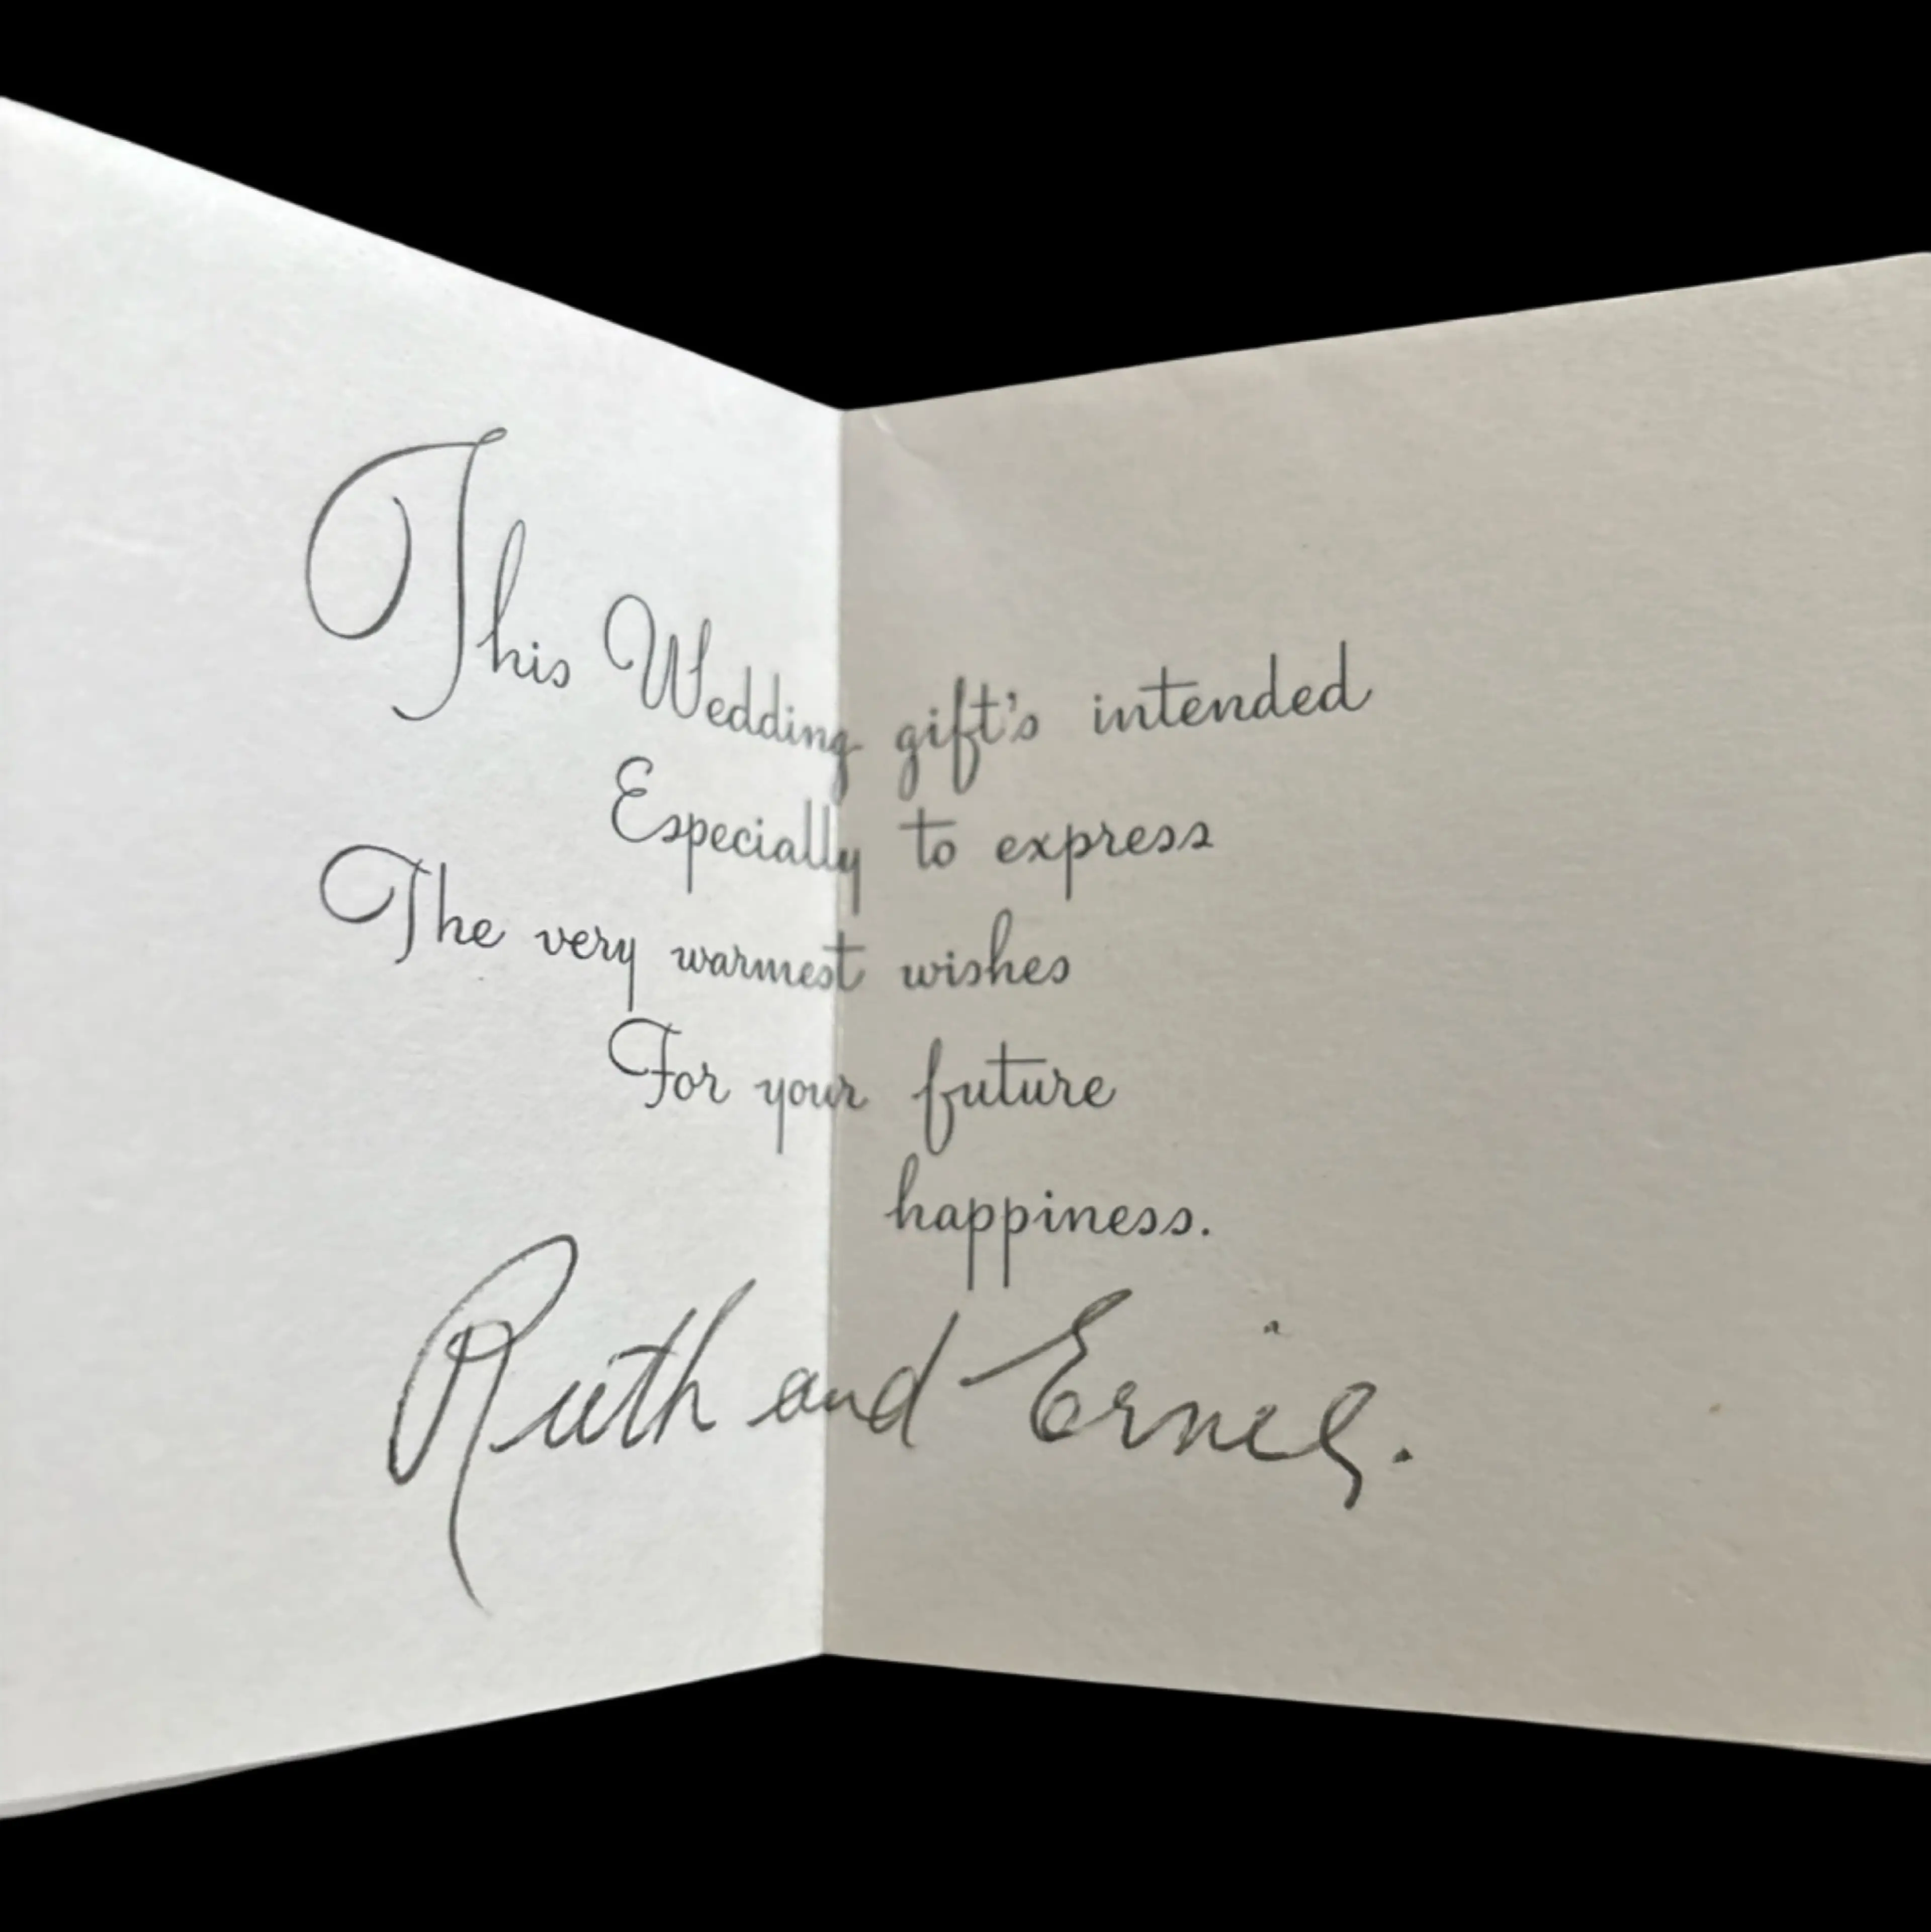 This Wedding gift's intended
Especially to express
The very warmest wishes
For your future
happiness.
Ruth and Ernie.